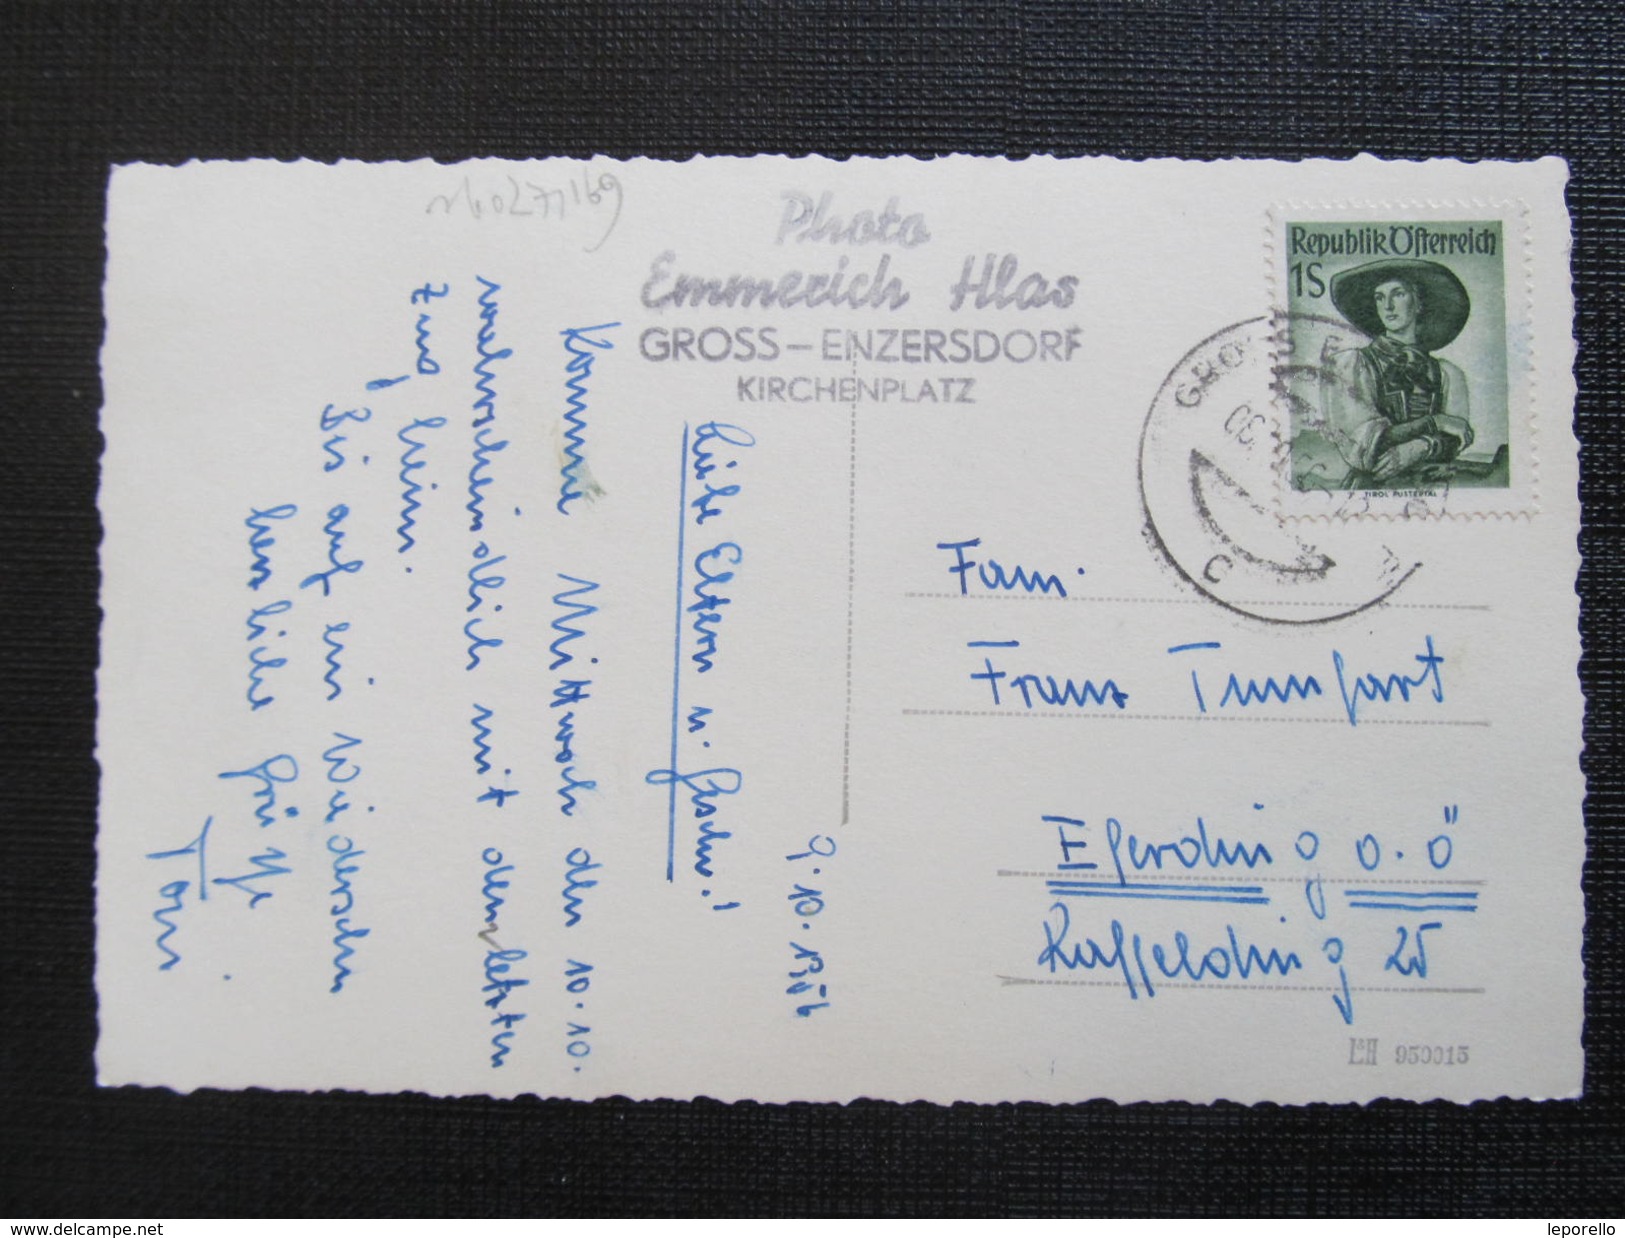 Photo
Emmerich Hlas
GROSS-ENZERSDORF
KIRCHENPLATZ
Republik Österreich
1S
TIROL PUSTERTAL
C
9.10.1956
Liebe Eltern u. Geschw.!
Komme Mittwoch den 10.10.
wahrscheindlich mit dem letzten
Zug heim.
Bis auf ein Wiedersehn
herzliche Grüße
Toni
Fam.
Franz Tumfart
Eferding O.Ö
Raffelding 25
L&H 950015
delcampe.net
leporello